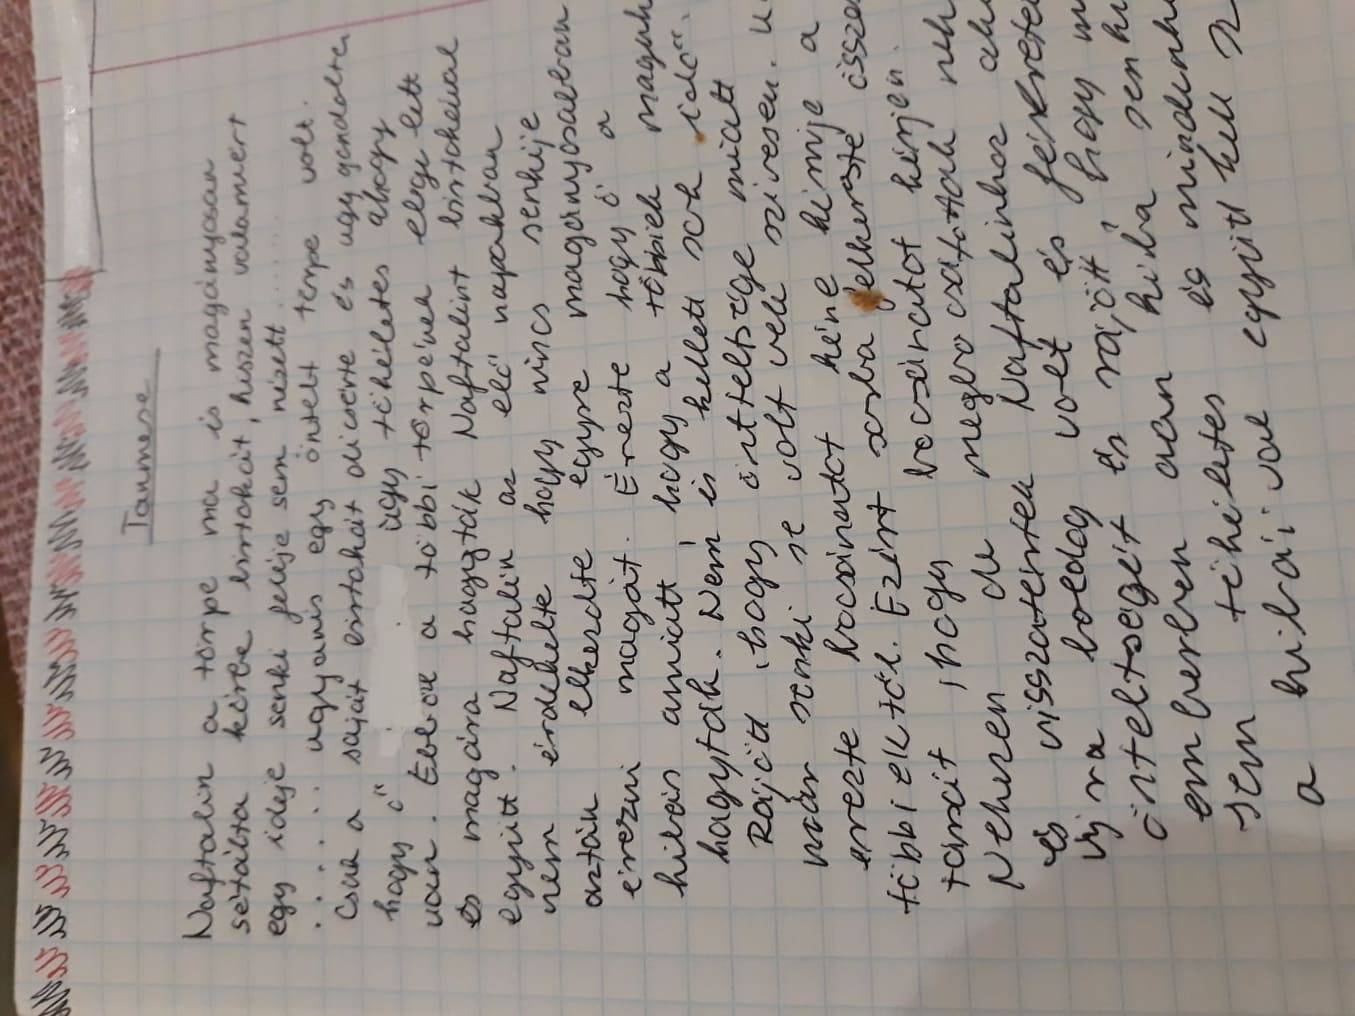 Tanmese
Naftalin a törpe ma is magányosan
sétálta körbe birtokát, hiszen valamiért
egy ideje senki feléje sem nézett.....
...... ugyanis egy öntelt törpe volt.
Csak a saját birtokát dícsérte és úgy gondolta,
hogy ő úgy tökéletes ahogy
van. Ebből a többi törpének elege lett
és magára hagyták Naftalint birtokával
együtt. Naftalin az elő napokban
nem érdekelte hogy nincs senkije
aztán elkezdte egyre magányosabban
érezni magát. Érezte hogy ő a
hibás amiatt hogy a többiek magah
hagyták. Nem is kellett sok idő"
Rájött, hogy önteltsége miatt
már senki se volt vele szívesen.
erezte bocsánatot kéne kérnje a
többiektől. Ezért sorba felkereste össze
társait, hogy bocsánatot kérjen.
Nehezen de megbocsátottak neh
és visszatértek Naftalinhoz
újra boldog volt és
önteltségét és rájött, hogy
emberben aan hiba
sem tökéletes és mindenh
a hibáival együtt kell